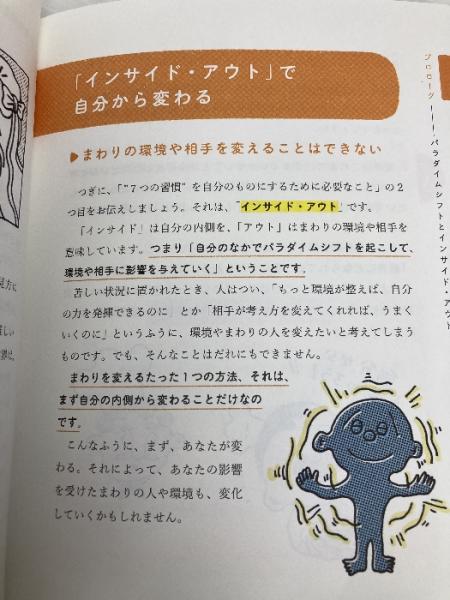 「インサイド・アウト」で
自分から変わる
まわりの環境や相手を変えることはできない
つぎに、「“７つの習慣”を自分のものにするために必要なこと」の２
つ目をお伝えしましょう。それは、「インサイド・アウト」です。
「インサイド」は自分の内側を、「アウト」はまわりの環境や相手を
意味しています。つまり「自分のなかでパラダイムシフトを起こして、
環境や相手に影響を与えていく」ということです。
苦しい状況に置かれたとき、人はつい、「もっと環境が整えば、自分
の力を発揮できるのに」とか「相手が考え方を変えてくれれば、うまく
いくのに」というふうに、環境やまわりの人を変えたいと考えてしまう
ものです。でも、そんなことはだれにもできません。
まわりを変えるたった１つの方法、それは、
まず自分の内側から変わることだけなの
です。
こんなふうに、まず、あなたが変
わる。それによって、あなたの影響
を受けたまわりの人や環境も、変化
していくかもしれません。
プロローグ――パラダイムシフトとインサイド・アウト